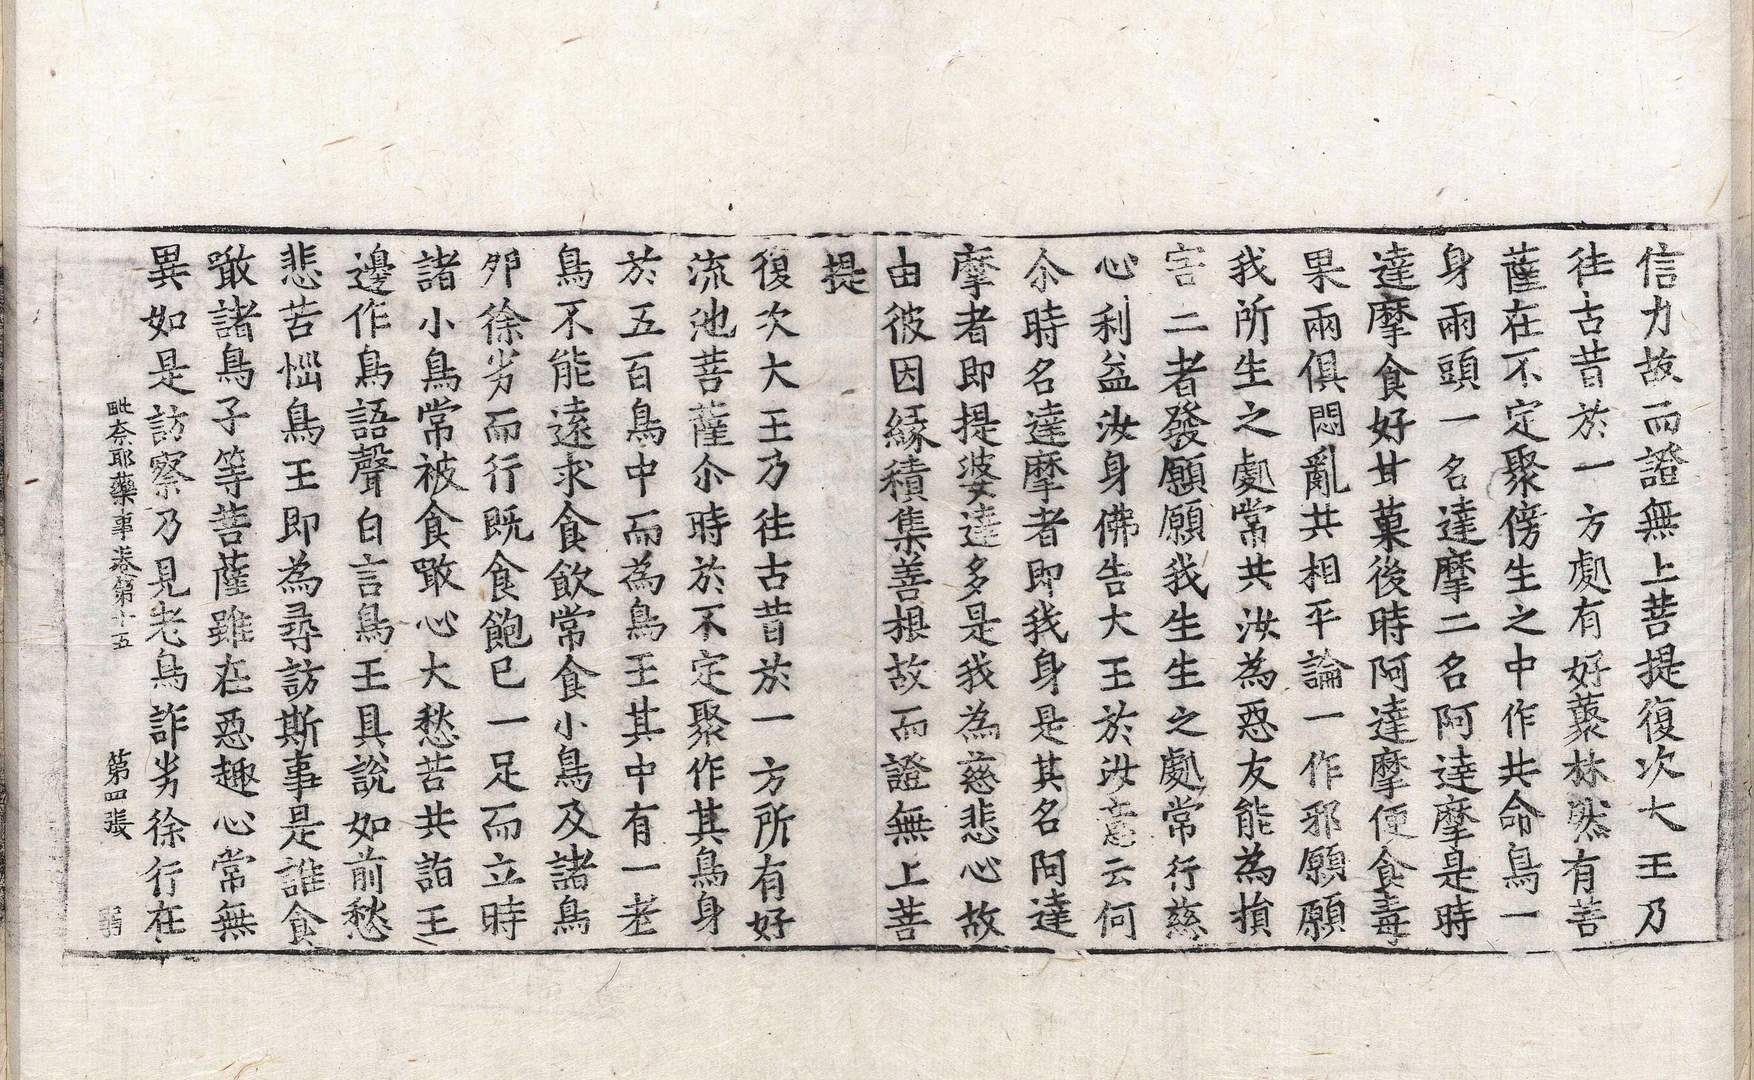 信力故而證無上菩提復次大王乃
徃古昔於一方處有好藂林㸐有菩
薩在不定聚傍生之中作共命鳥一
身兩頭一名達摩二名阿達摩是時
達摩食好甘菓後時阿達摩便食毒
果兩俱悶亂共相平論一作邪願願
我所生之處常共汝為惡友能為損
害二者發願願我生生之處常行慈
心利益汝身佛告大王於汝意云何
尒時名達摩者即我身是其名阿達
摩者即提婆達多是我為慈悲心故
由彼因緣積集善根故而證無上菩
提
復次大王乃徃古昔於一方所有好
流池菩薩尒時於不定聚作其鳥身
於五百鳥中而為鳥王其中有一老
鳥不能遠求食飲常食小鳥及諸鳥
夘徐劣而行既食飽已一足而立時
諸小鳥常被食噉心大愁苦共詣王
邊作鳥語聲白言鳥王具說如前愁
悲苦惱鳥王即為尋訪斯事是誰食
噉諸鳥子等菩薩雖在惡趣心常無
異如是訪察乃見老鳥詐劣徐行在
毗奈耶藥事卷第十五 第四張